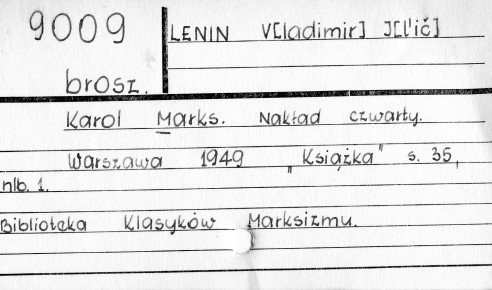 9009
brosz.
LENIN V[ladimir] J[l'ič]
Karol Marks. Nakład czwarty.
Warszawa 1949 "Książka" s. 35,
nlb. 1.
Biblioteka Klasyków Marksizmu.